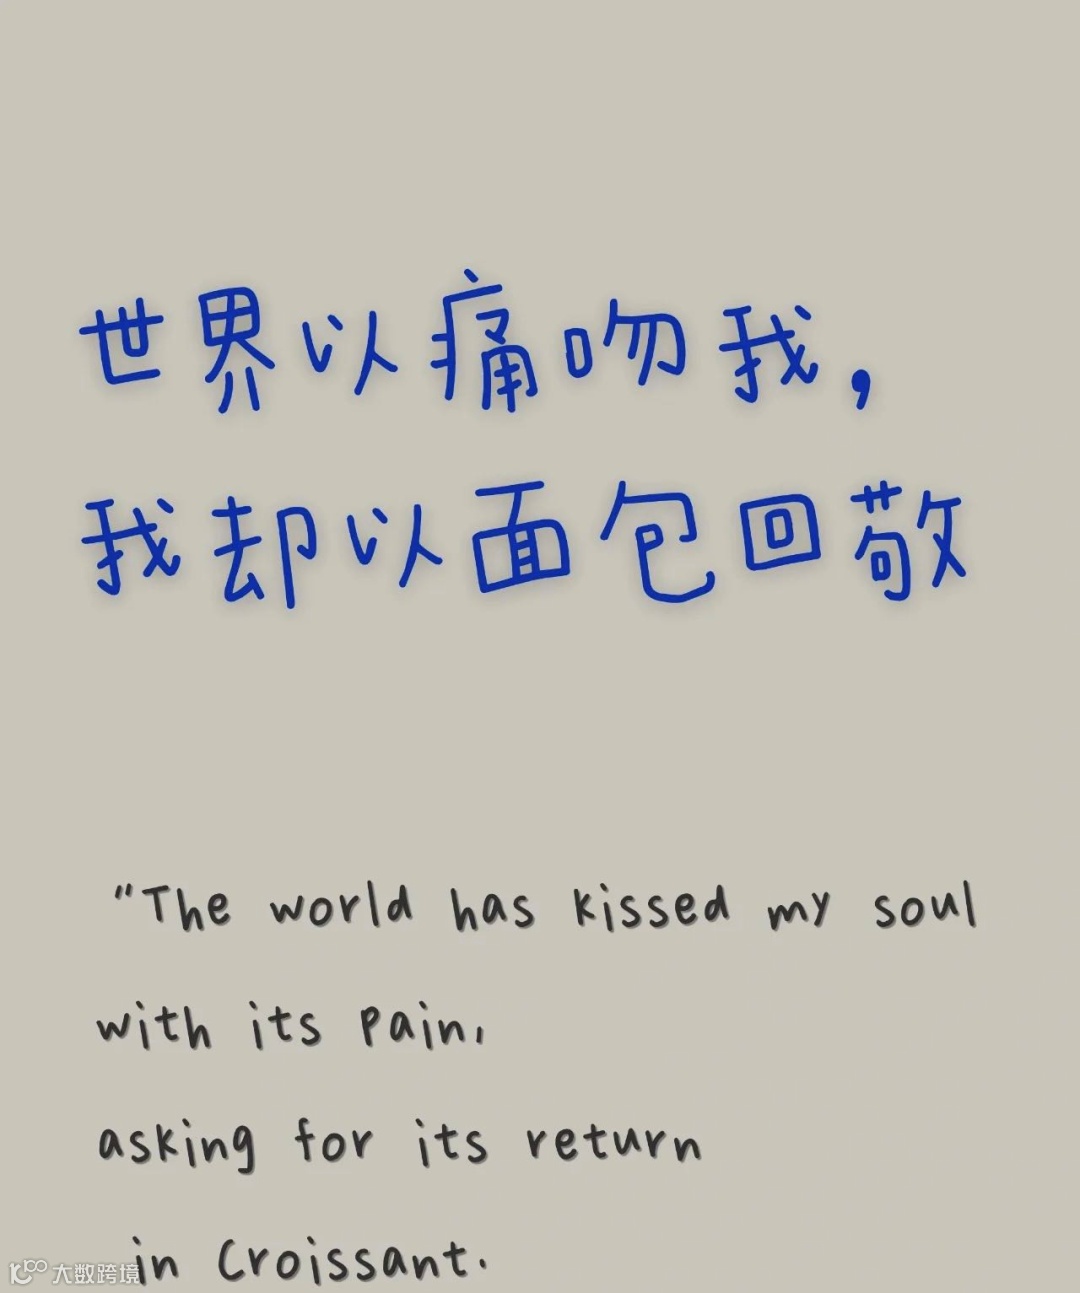 世界以痛吻我，
我却以面包回敬
"The world has kissed my soul
with its pain,
asking for its return
in Croissant.
大数跨境